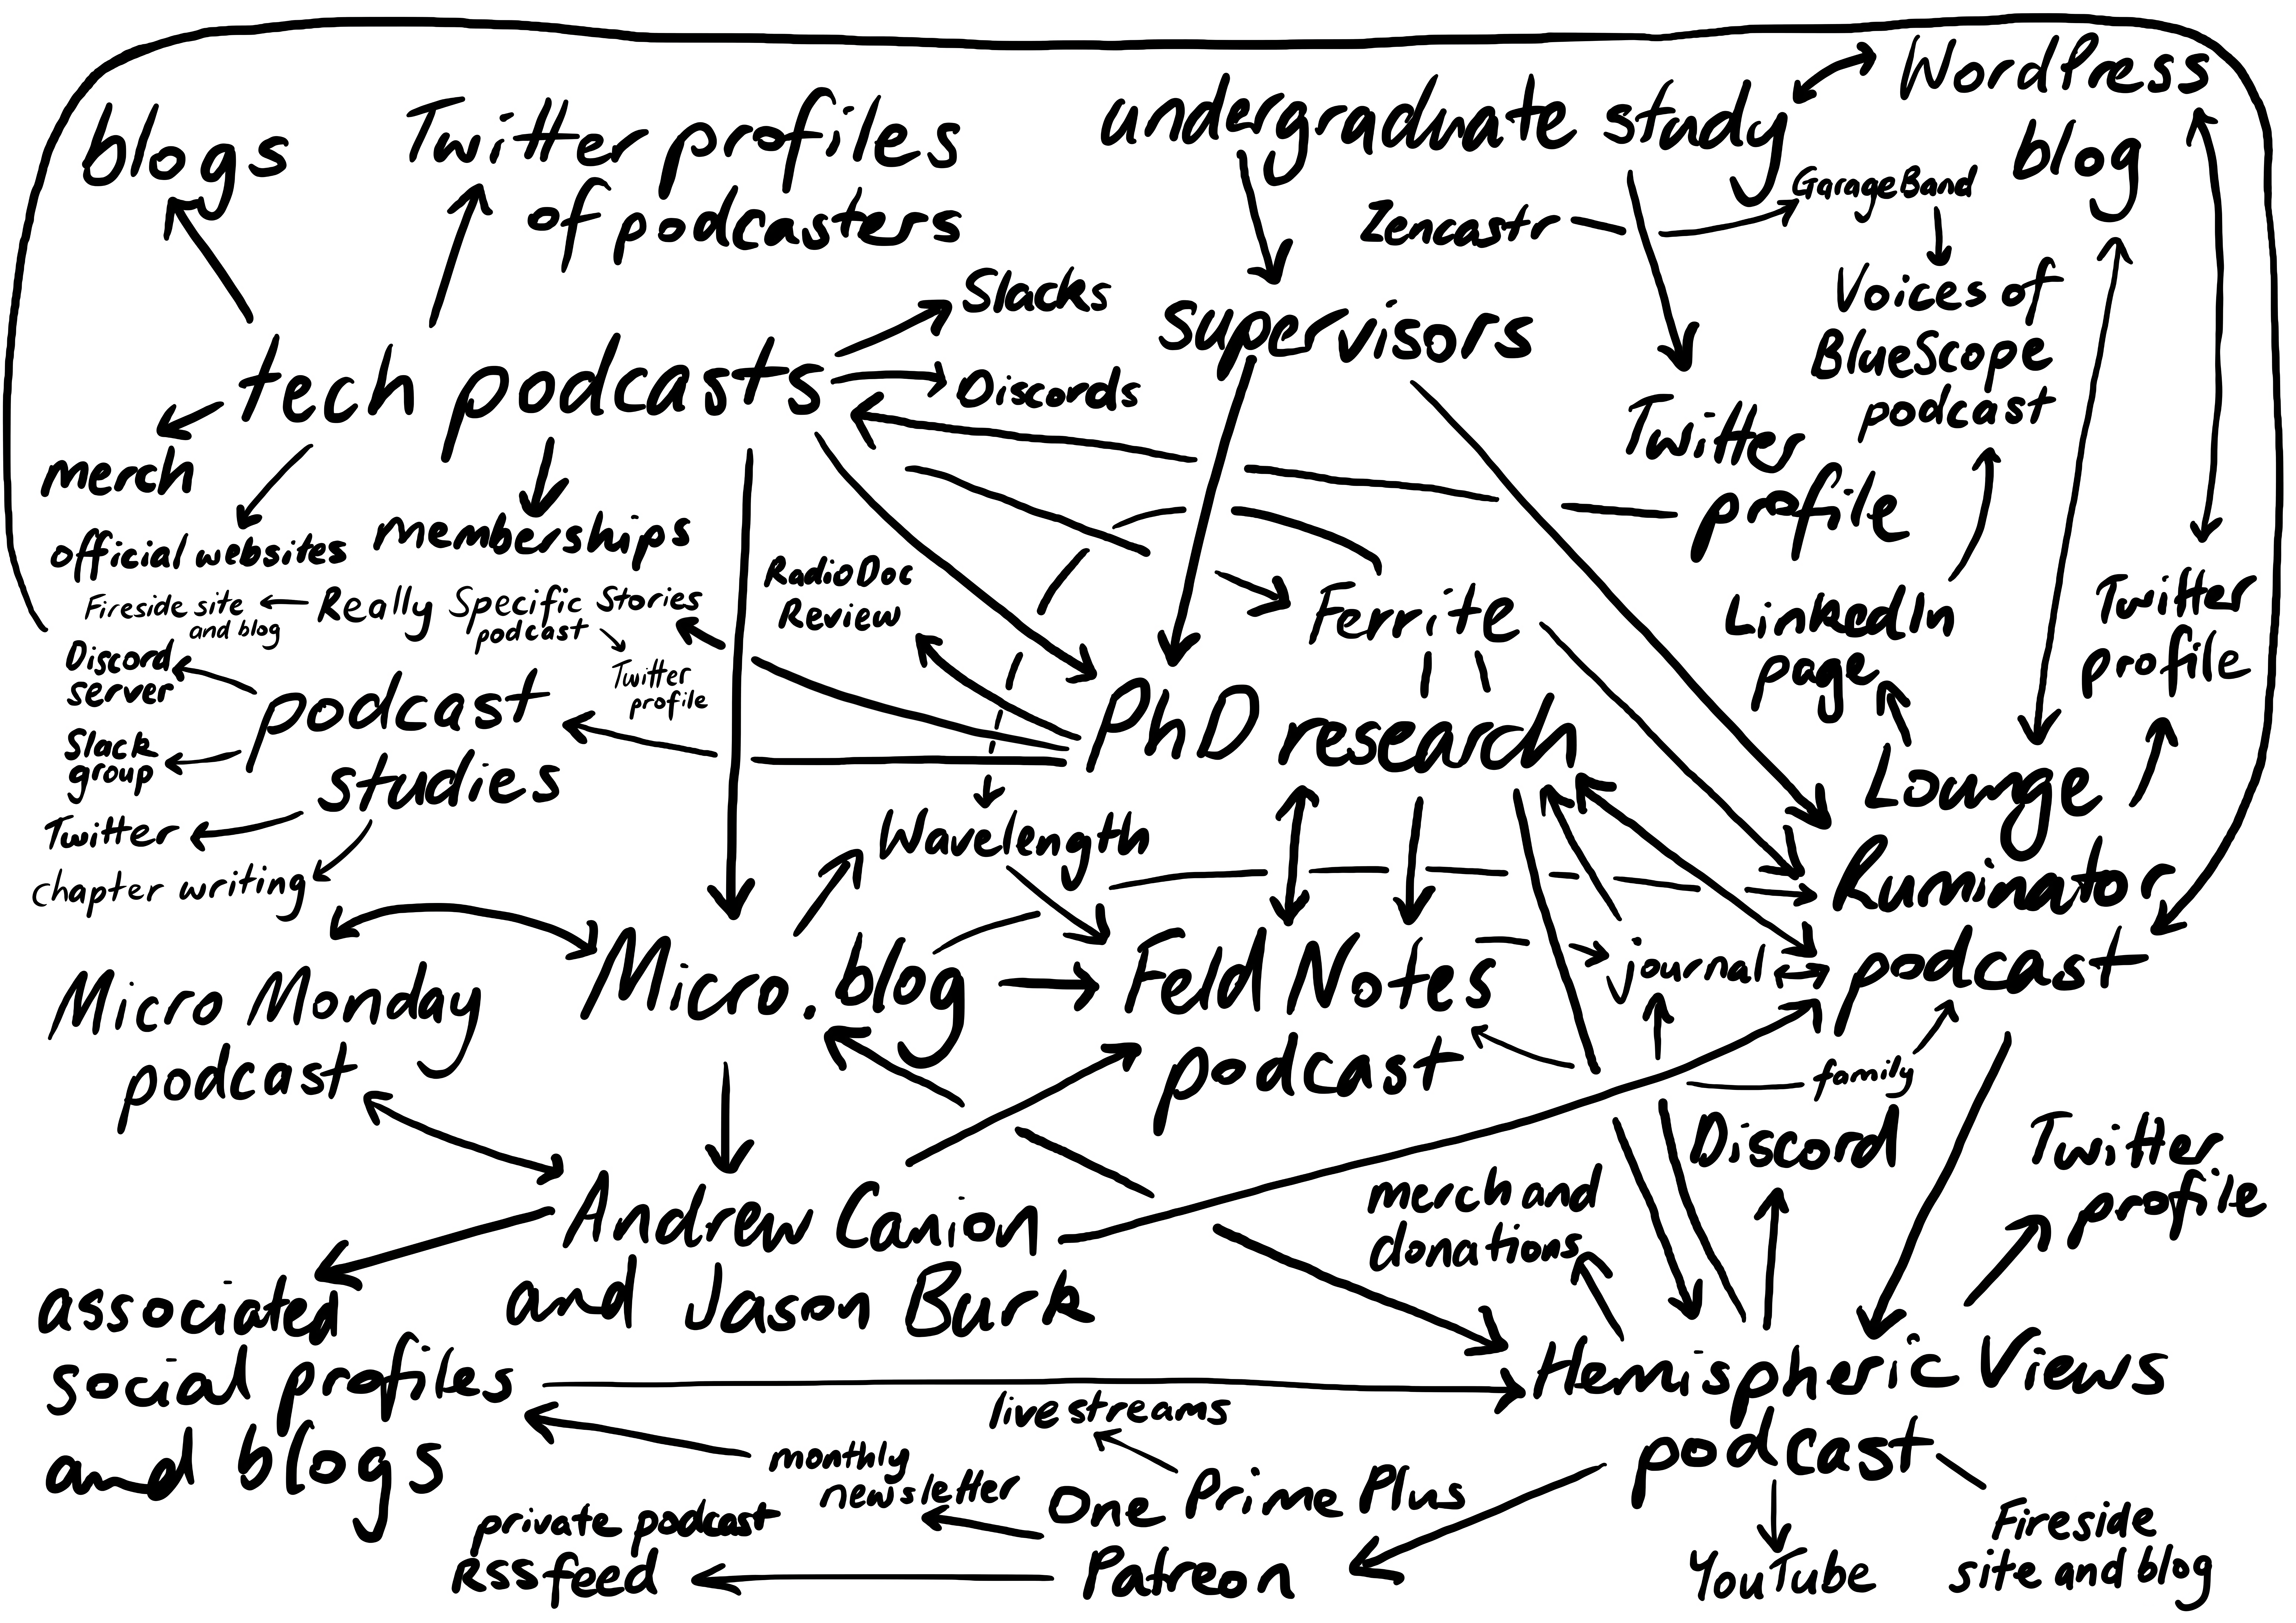 blogs
Twitter profiles
of podcasters
undergraduate study
WordPress
blog
Zencastr
GarageBand
Voices of
BlueScope
podcast
Slacks
Discords
supervisors
tech podcasts
merch
official websites
memberships
Twitter
profile
RadioDoc
Review
Ferrite
LinkedIn
page
Twitter
profile
Fireside site
and blog
Really Specific Stories
podcast
Twitter
profile
Discord
server
podcast
studies
Slack
group
Twitter
chapter writing
PhD research
Wavelength
Lounge
Ruminator
podcast
Micro Monday
podcast
Micro.blog
Feld Notes
podcast
journal
family
Discord
Twitter
profile
merch and
donations
Andrew Canion
and Jason Burk
associated
social profiles
and blogs
Hemispheric Views
podcast
live streams
monthly
newsletter
One Prime Plus
Patreon
private podcast
RSS feed
YouTube
Fireside
site and blog